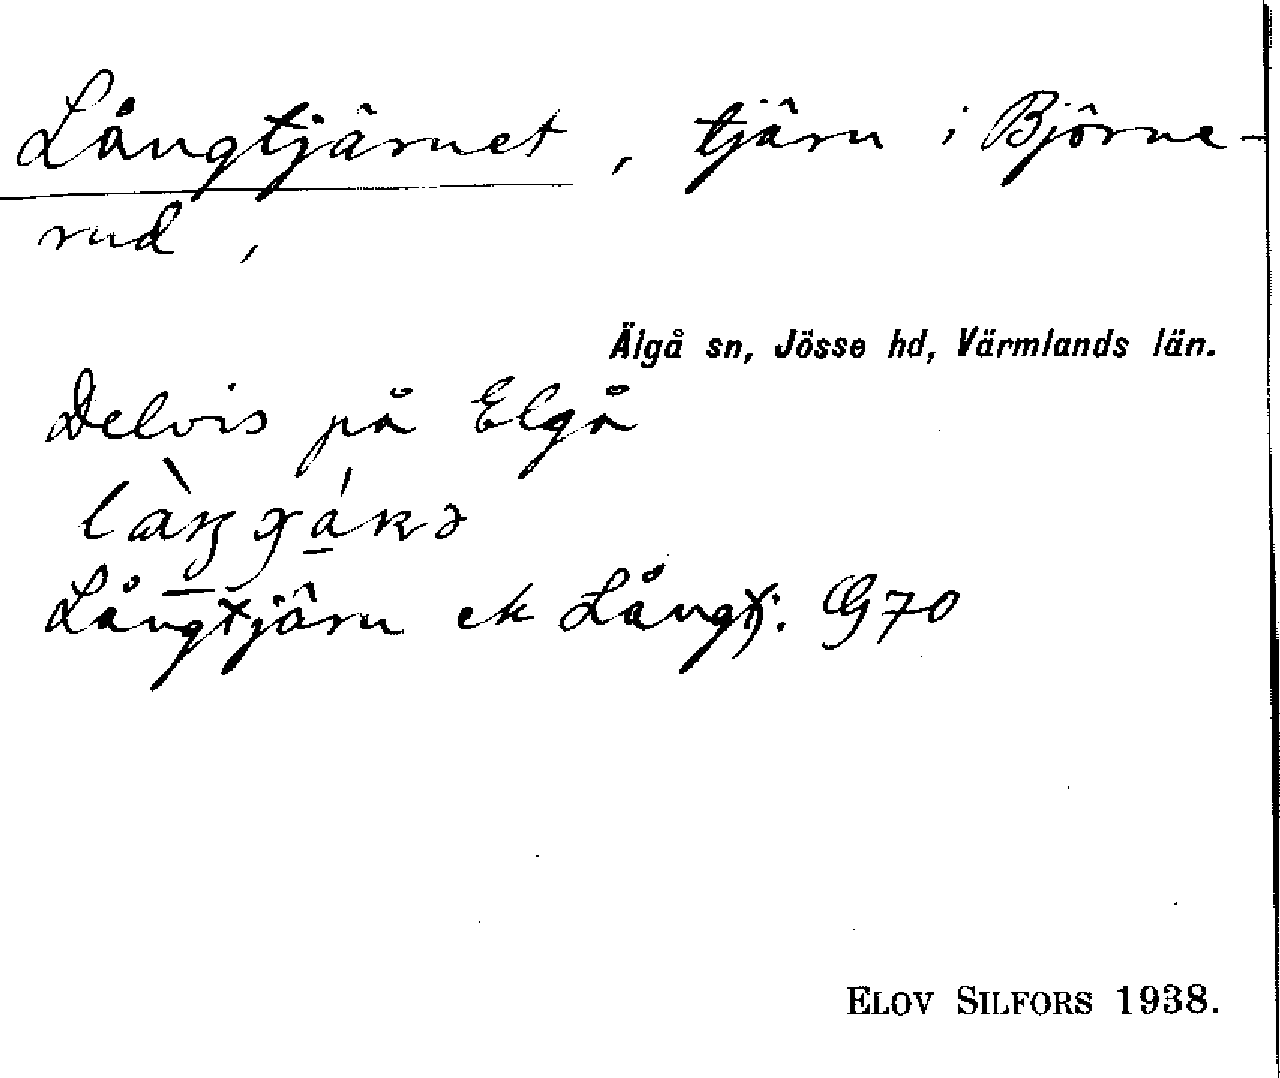 Långtjärnet, tjärn i Björne-
rud,
Älgå sn, Jösse hd, Värmlands län.
Delvis på Elgå
Långtjärn ek Långtj: G70
ELOV SILFORS 1938.